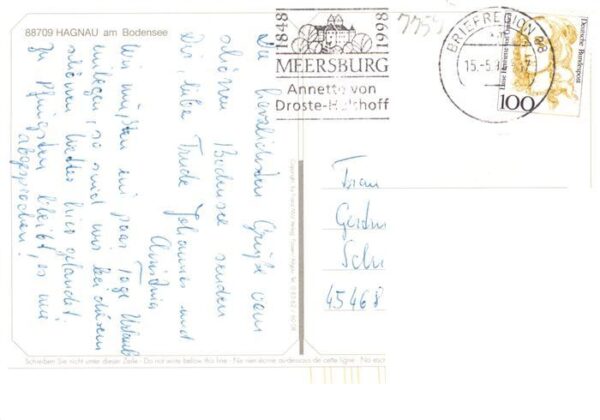 88709 HAGNAU am Bodensee
1848
1998
MEERSBURG
Annette von
Droste-Hülshoff
7754
BRIEFREGION 88
15.-5.
Deutsche Bundespost
100
Die herzlichsten Grüße vom
schönen Bodensee senden
Dir, liebe Trude Johannes und
Christina
Wir mußten ein paar Tage Urlaub
einlegen, so sind wir bei diesem
schönen Wetter hier gelandet.
Zu Pfingsten bleibt es wie
abgesprochen!
Frau
Schu
45468
Schreiben Sie nicht unter dieser Zeile · Do not write below this line · Ne rien écrire au-dessous de cette ligne · No escri